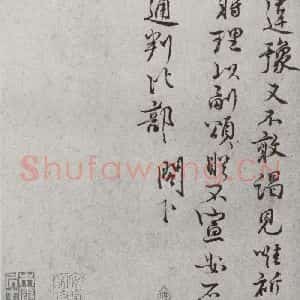 違豫又不敢謁見唯祈
理以副頌不宣
通判比部閤下
Shufawang.Cn